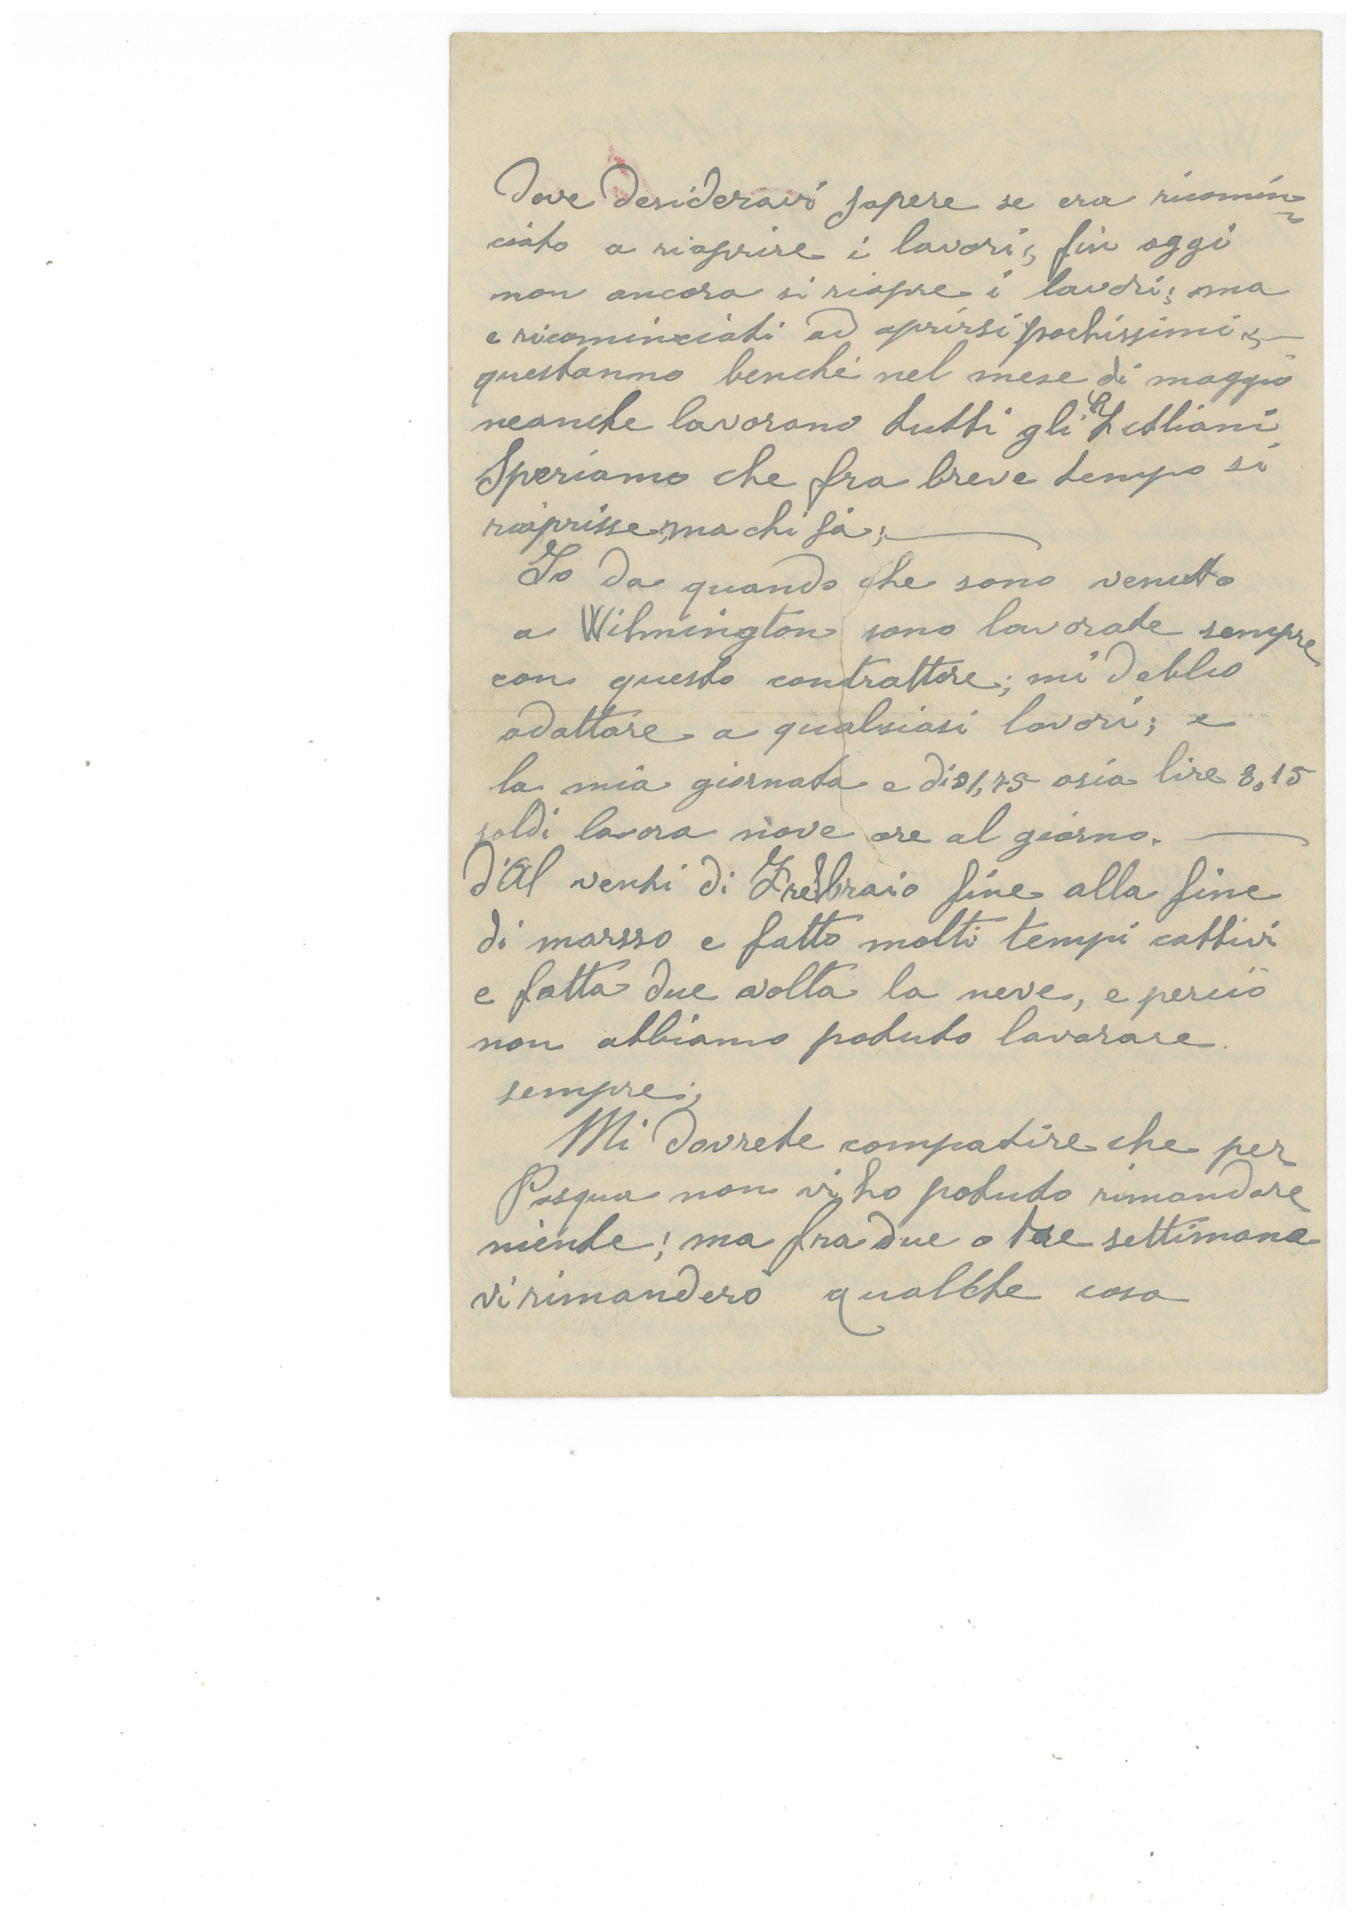 dove desideravi sapere se era ricomin=
ciato a riaprire i lavori; fin oggi
non ancora si riapre i lavori; ma
e ricominciati ad aprirsi pochissimi;
questanno benchè nel mese di maggio
neanche lavorano tutti gli
Speriamo che fra breve tempo si
riaprisse, ma chi sà;
Io da quando che sono venutto
a Wilmington sono lavorate sempre
con questo contrattore; mi debbo
adattare a qualsiasi lavori; e
la mia giornata e di $1,75 osia lire 8,15
soldi lavora nove ore al giorno.
d'Al venti di Frebbraio fine alla fine
di marsso e fatto molti tempi cattivi
e fatta due volta la neve, e perciò
non abbiamo potuto lavorare
sempre;
Mi dovrete compatire che per
Pasqua non vi ho potuto rimandare
niente; ma fra due o tre settimana
vi rimanderò qualche cosa